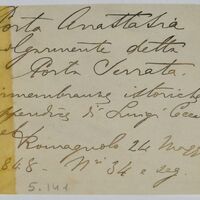 Porta Anastasia
volgarmente detta
Porta Serrata.
Rimembranze istoriche
Appendice di Luigi
Romagnolo 24
1848 - Nri 34 e seg.
5.141